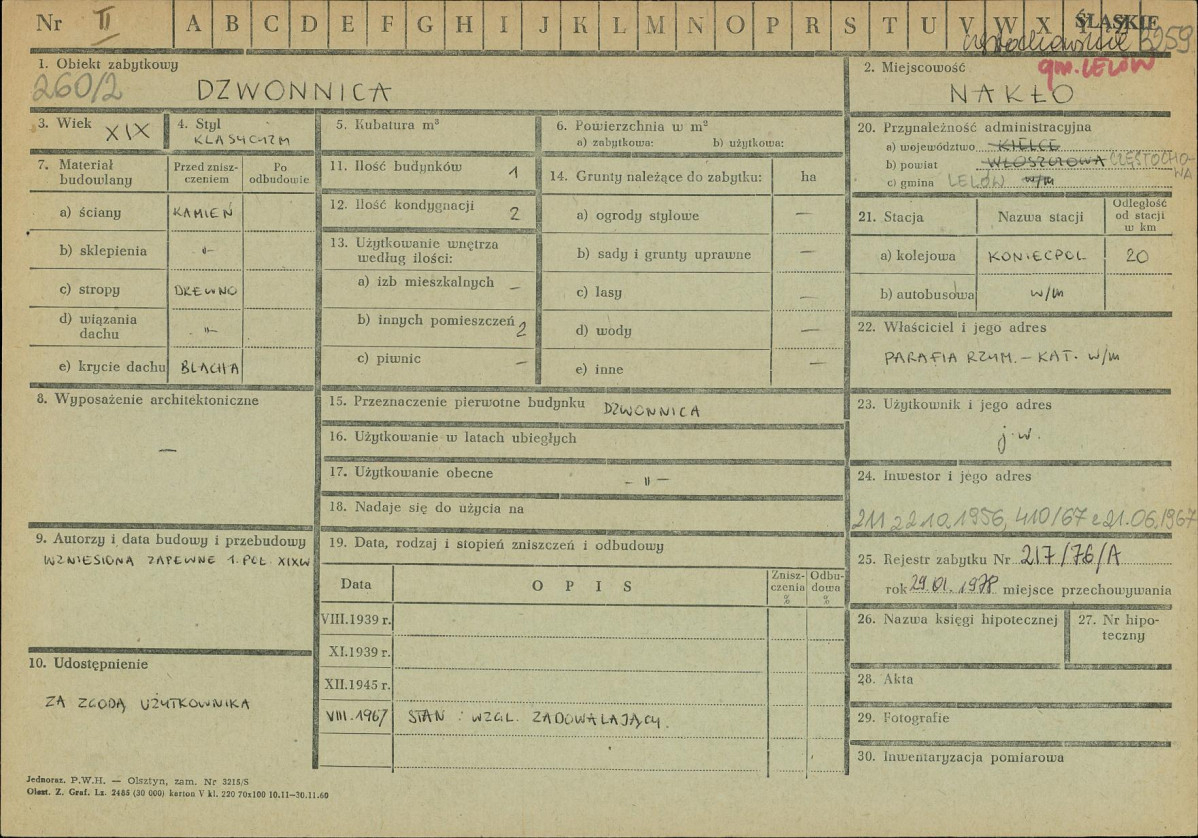 Nr II A B C D E F G H I J K L M N O P R S T U V W X ŚLĄSKIE
3959
gm. LELÓW
1. Obiekt zabytkowy
260/2 DZWONNICA
2. Miejscowość
NAKŁO
3. Wiek XIX
4. Styl
KLASYCYZM
5. Kubatura m³
6. Powierzchnia w m²
a) zabytkowa: b) użytkowa:
7. Materiał budowlany
Przed zniszczeniem
Po odbudowie
a) ściany KAMIEŃ
b) sklepienia -"-
c) stropy DREWNO
d) wiązania dachu -"-
e) krycie dachu BLACHA
8. Wyposażenie architektoniczne
—
9. Autorzy i data budowy i przebudowy
WZNIESIONA ZAPEWNE 1. POŁ XIXW
10. Udostępnienie
ZA ZGODĄ UŻYTKOWNIKA
11. Ilość budynków 1
12. Ilość kondygnacji 2
13. Użytkowanie wnętrza
według ilości:
a) izb mieszkalnych —
b) innych pomieszczeń 2
c) piwnic —
14. Grunty należące do zabytku: ha
a) ogrody stylowe —
b) sady i grunty uprawne —
c) lasy —
d) wody —
e) inne —
15. Przeznaczenie pierwotne budynku DZWONNICA
16. Użytkowanie w latach ubiegłych
17. Użytkowanie obecne - " -
18. Nadaje się do użycia na
19. Data, rodzaj i stopień zniszczeń i odbudowy
Data OPIS Zniszczenia % Odbudowa %
VIII.1939 r.
XI.1939 r.
XII.1945 r.
VIII.1967 STAN : WZGL. ZADOWALAJĄCY.
20. Przynależność administracyjna
a) województwo KIELCE
b) powiat WŁOSZCZOWA CZĘSTOCHOWA
c) gmina LELÓW w/m
21. Stacja Nazwa stacji Odległość od stacji w km
a) kolejowa KONIECPOL 20
b) autobusowa w/m
22. Właściciel i jego adres
PARAFIA RZYM. - KAT. w/m
23. Użytkownik i jego adres
j.w.
24. Inwestor i jego adres
211 z 22.10.1956, 410/67 z 21.06.1967
25. Rejestr zabytku Nr 217/76/A
rok 29.01.1978 miejsce przechowywania
26. Nazwa księgi hipotecznej
27. Nr hipoteczny
28. Akta
29. Fotografie
30. Inwentaryzacja pomiarowa
Jednoraz. P.W.H. — Olsztyn, zam. Nr 3215/S
Olszt. Z. Graf. Lz. 2485 (30 000) karton V kl. 220 70x100 10.11—30.11.60